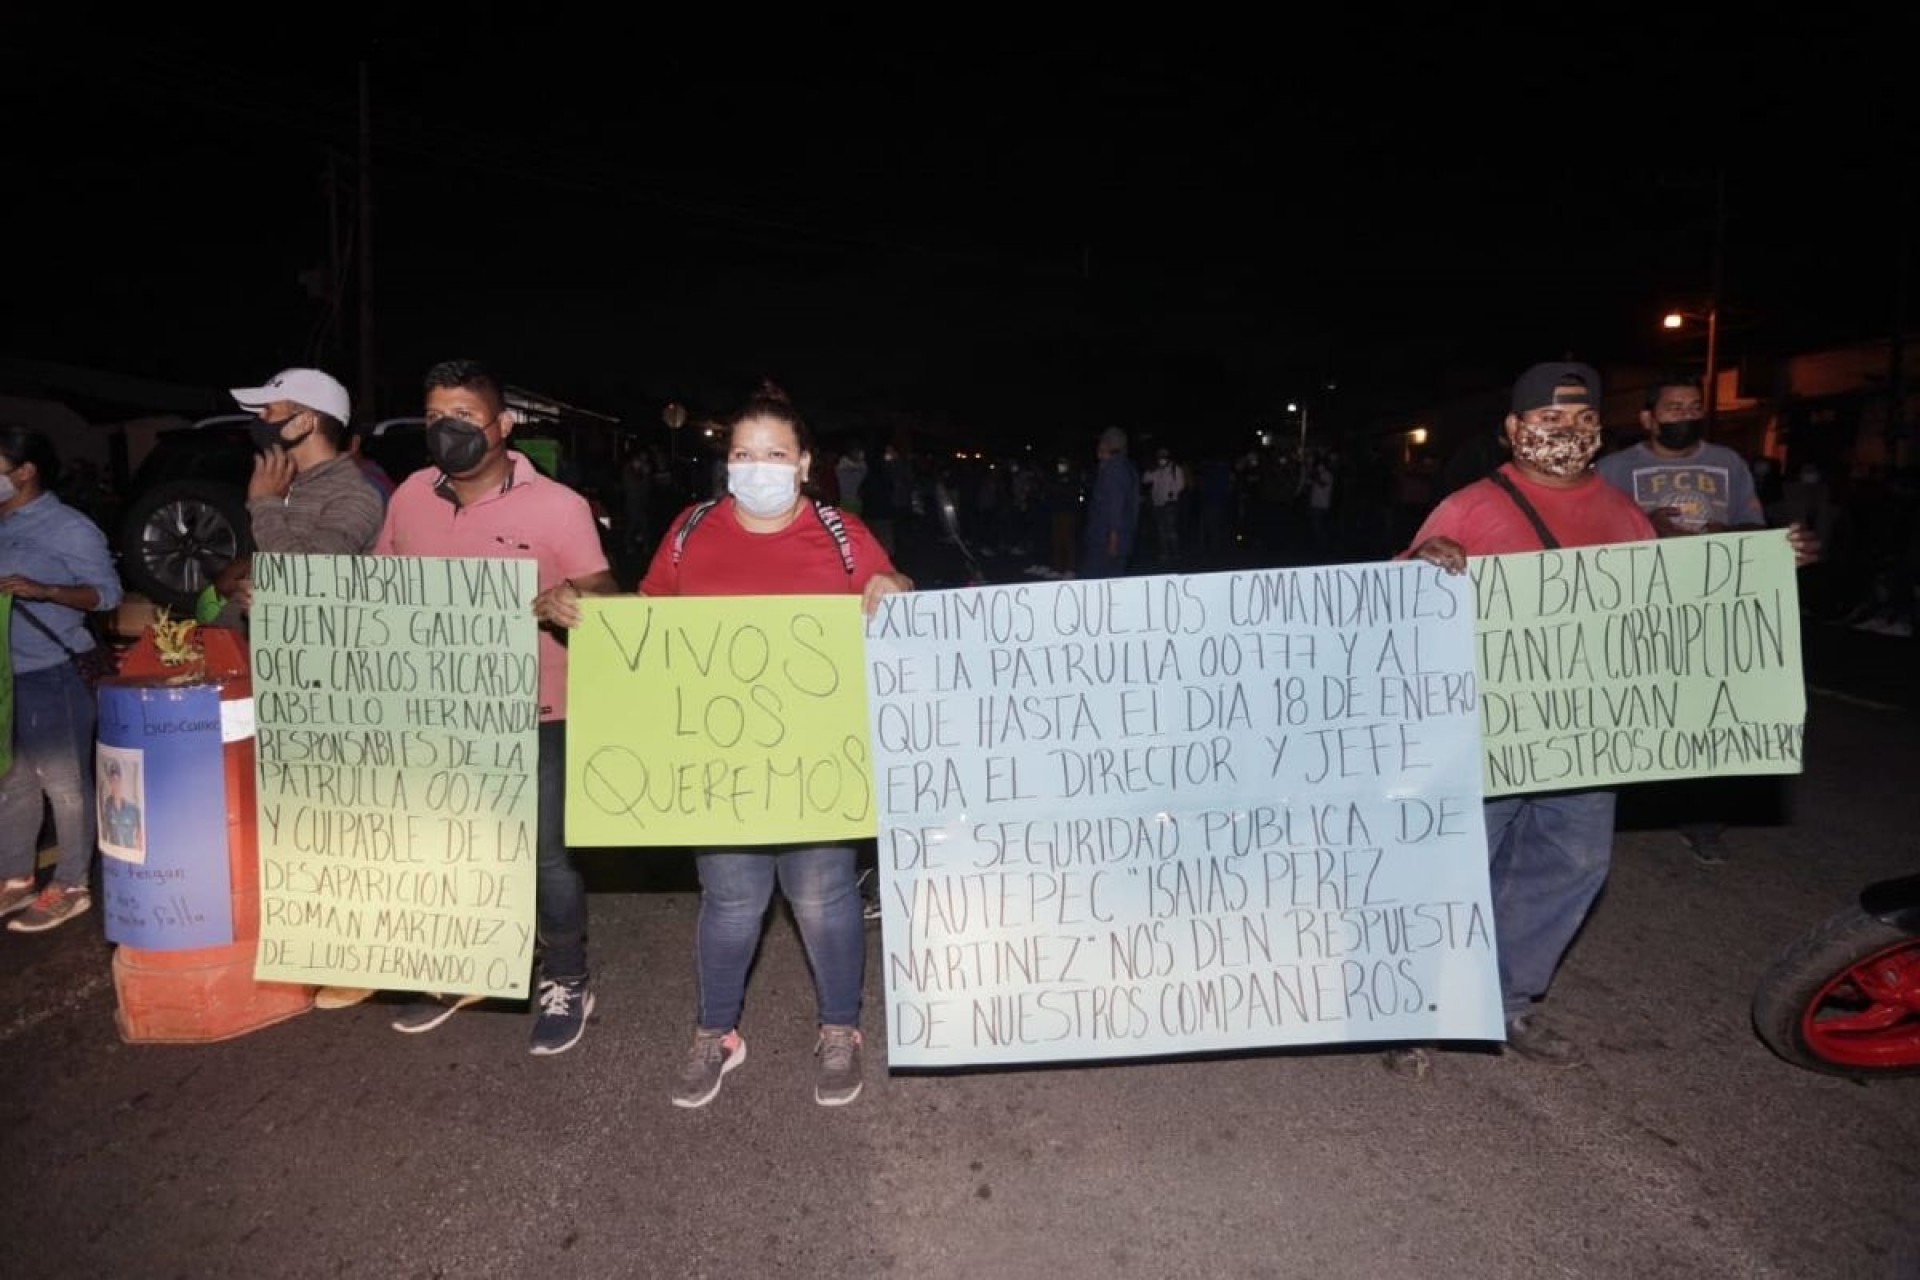 buscamos
tengan
falta
COMTE. "GABRIEL IVAN
FUENTES GALICIA"
OFIC. CARLOS RICARDO
CABELLO HERNANDEZ
RESPONSABLES DE LA
PATRULLA 00777
Y CULPABLE DE LA
DESAPARICION DE
ROMAN MARTINEZ Y
DE LUIS FERNANDO O.
VIVOS
LOS
QUEREMOS
EXIGIMOS QUE LOS COMANDANTES
DE LA PATRULLA 00777 Y AL
QUE HASTA El DIA 18 DE ENERO
ERA EL DIRECTOR Y JEFE
DE SEGURIDAD PUBLICA DE
YAUTEPEC "ISAIAS PEREZ
MARTINEZ" NOS DEN RESPUESTA
DE NUESTROS COMPAÑEROS.
YA BASTA DE
TANTA CORRUPCION
DEVUELVAN A
NUESTROS COMPAÑEROS
FCB